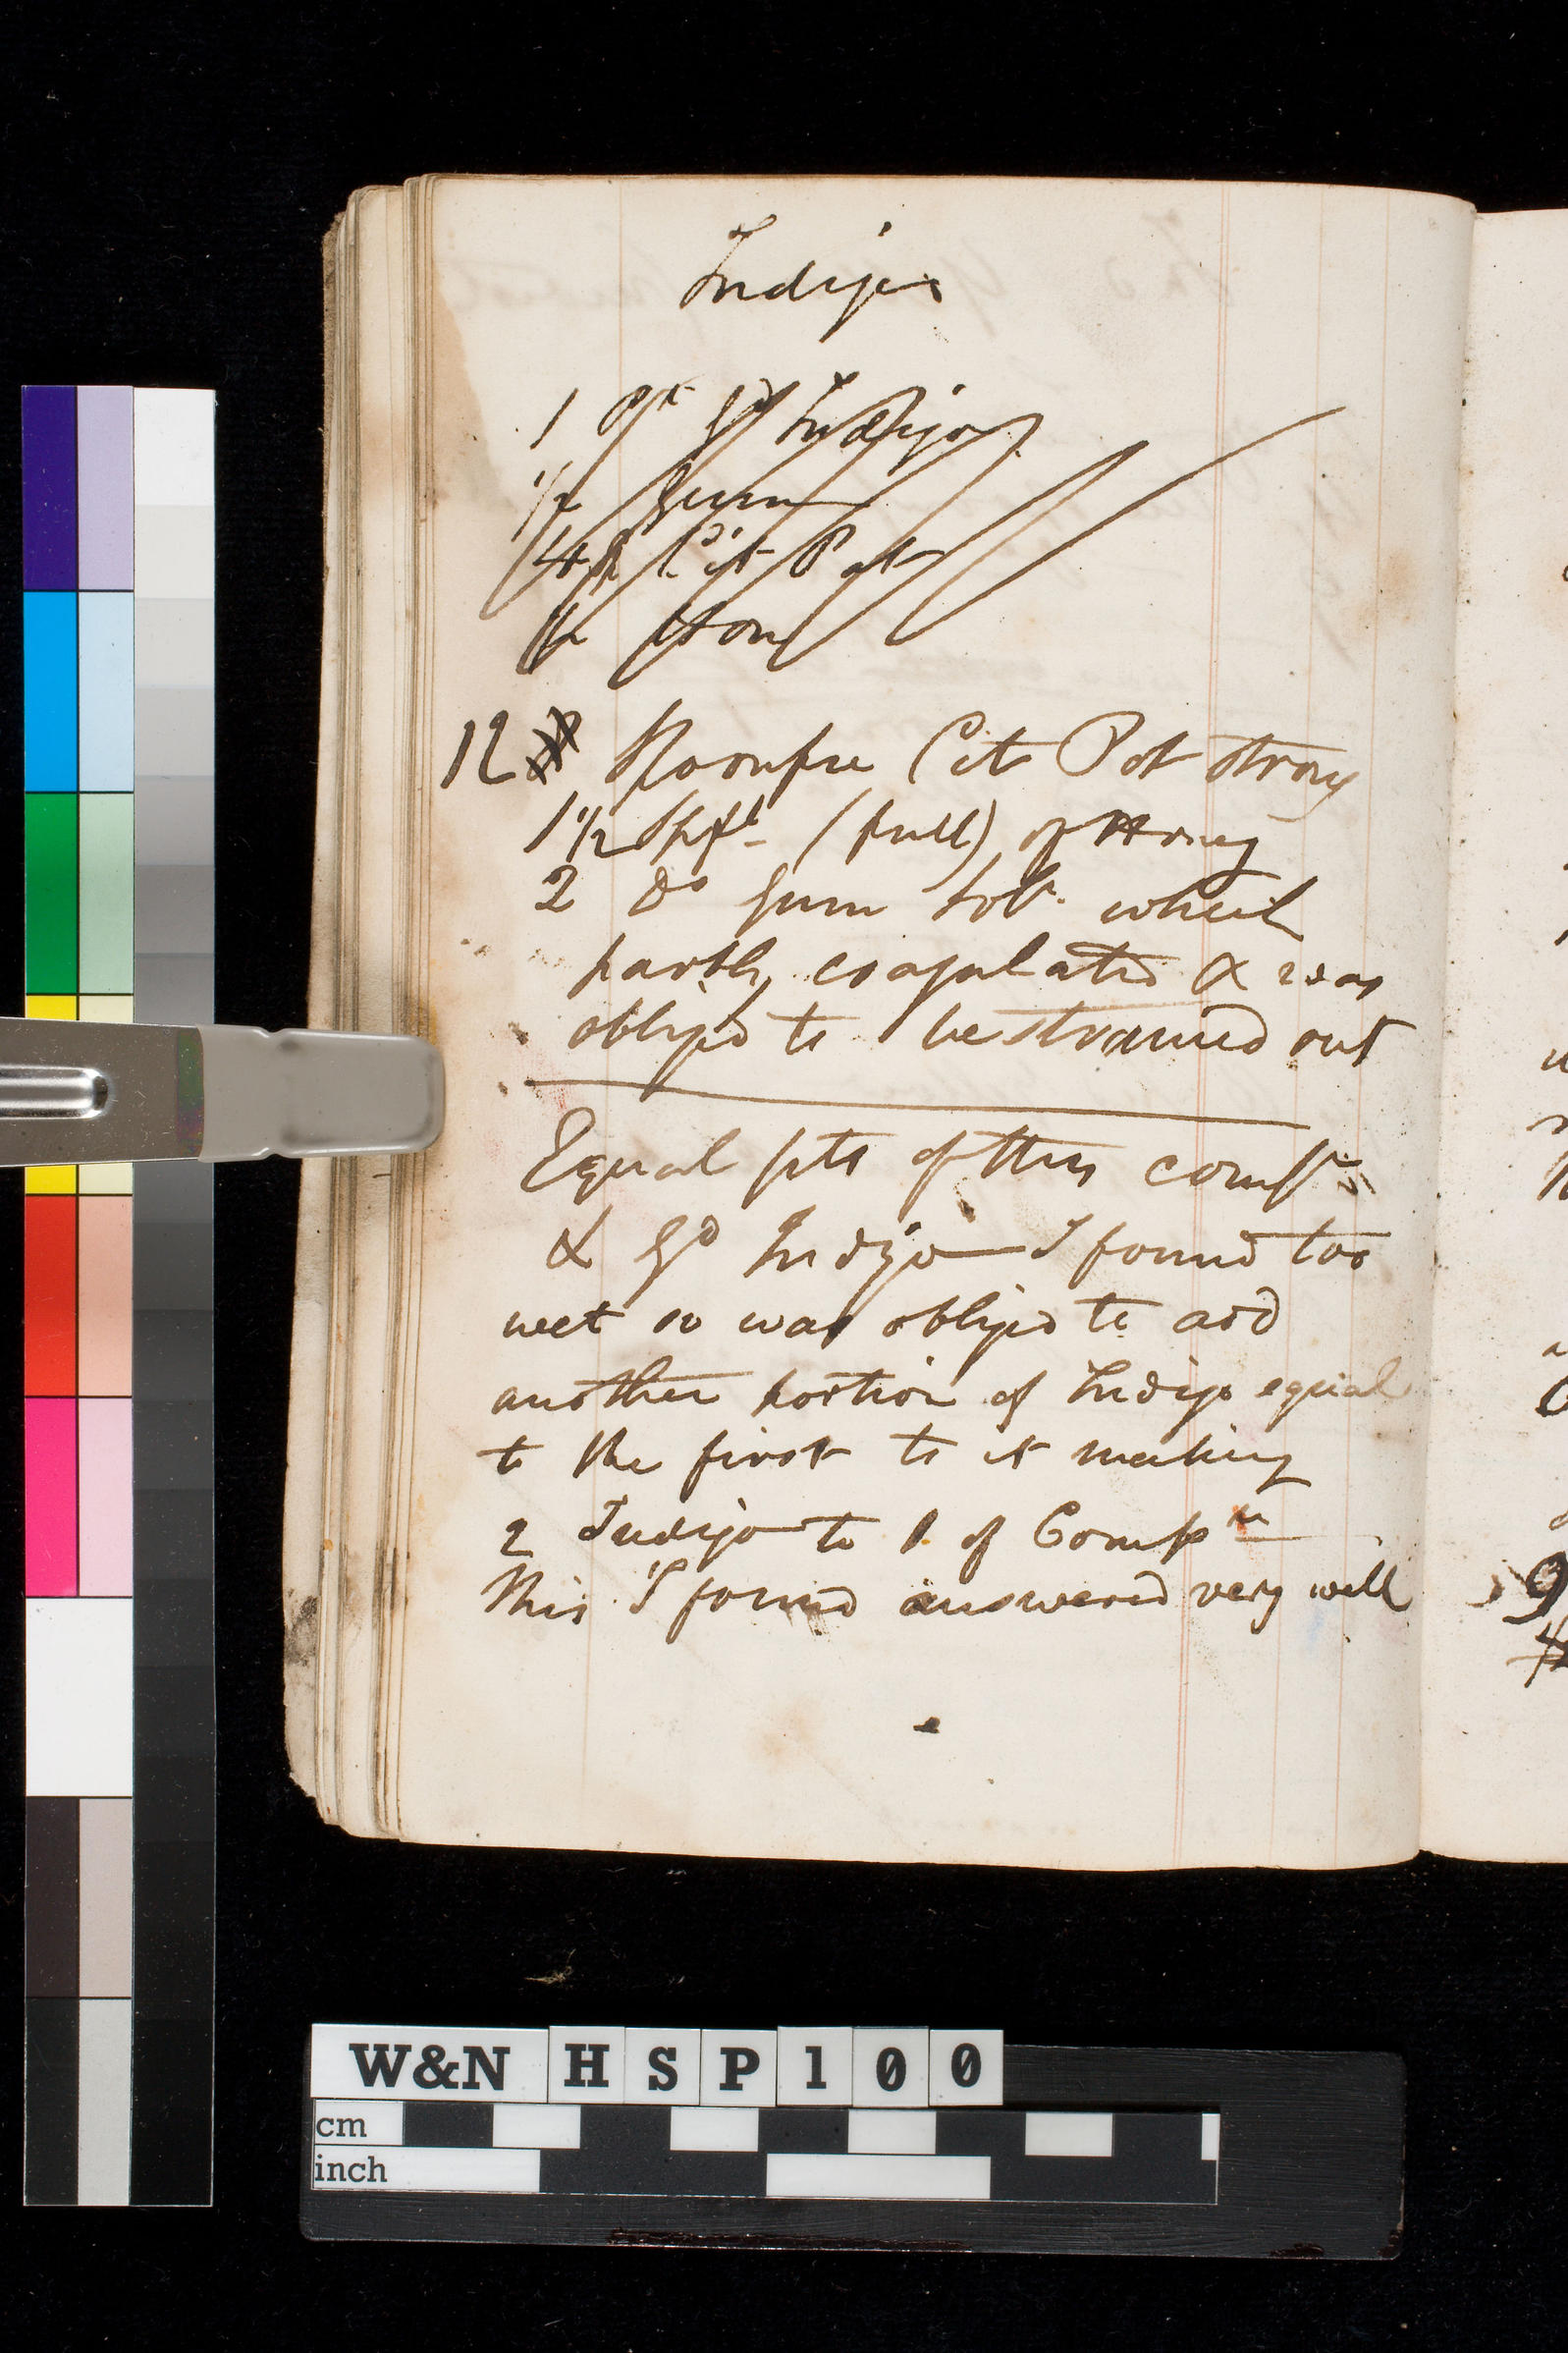 Indigo
1 Pt Gd Indigo
1/2 Gum
Cit Pot
1/2 Hon
12 Spoonfre Cit Pot strong
1 1/2 Spfl (full) of Honey
2 Do Gum Sol. which
partly coagulated & was
obliged to be strained out
Equal pts of this compn
& Gd Indigo I found too
wet so was obliged to add
another portion of Indigo equal
to the first to it making
2 Indigo to 1 of Compn
This I found answered very well
9
W&N HSP100
cm
inch